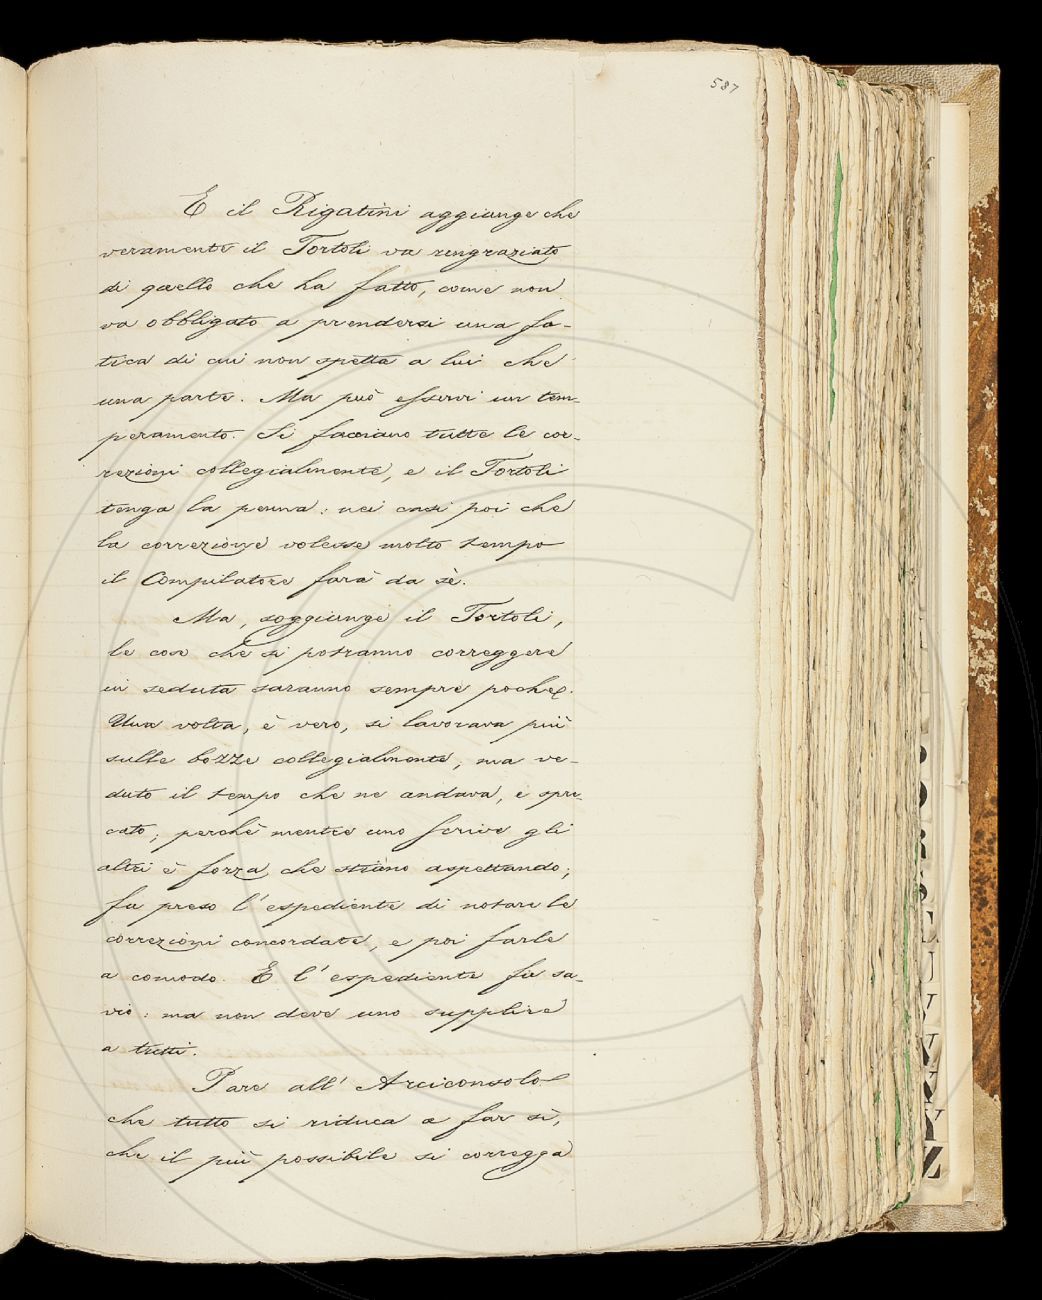 587
E il Rigatini aggiunge che
veramente il Tortoli va rengraziato
di quello che ha fatto, come non
va obbligato a prendersi una fa-
tica di cui non spetta a lui che
una parte. Ma può esservi un tem-
peramento. Si facciano tutte le cor-
rezioni collegialmente, e il Tortoli
tenga la penna: nei casi poi che
la correzione volesse molto tempo
il Compilatore farà da sè.
Ma, soggiunge il Tortoli,
le cose che si potranno correggere
in seduta saranno sempre poche.
Una volta, è vero, si lavorava più
sulle bozze collegialmente, ma ve-
duto il tempo che ne andava, e spre-
cato; perchè mentre uno scrive gli
altri è forza che stiano aspettando;
fu preso l'espediente di notare le
correzioni concordate, e poi farle
a comodo. E l'espediente fu sa-
vio: ma non deve uno supplire
a tutti.
Pare all'Arciconsolo
che tutto si riduca a far sì,
che il più possibile si corregga